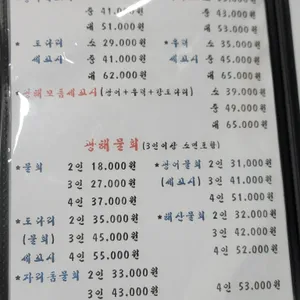 중 41.000원 중 43.000원
대 51.000원 대 53.000원
* 도다리 소 29.000원 * 우럭 소 35.000원
세꼬시 중 41.000원 세꼬시 중 45.000원
대 62.000원 대 65.000원
세꼬시(광어+우럭+참도다리) 소 39.000원
중 49.000원
대 65.000원
물회 (3인이상 소면포함)
*물회 2인 18.000원 *광어물회 2인 31.000원
3인 27.000원 (세꼬시) 3인 41.000원
4인 37.000원 4인 51.000원
*도다리 2인 35.000원 *해산물회 2인 32.000원
(물회) 3인 45.000원 3인 42.000원
세꼬시 4인 55.000원 4인 52.000원
*자리돔물회 2인 33.000원
3인 43.000원 4인 53.000원